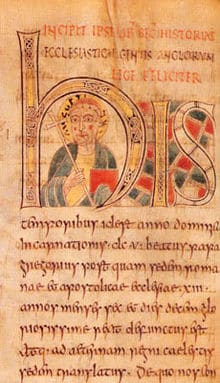 INCIPIT HISTORIAE
ECCLESIASTICAE GENTIS ANGLORUM
LEGE FELICITER
his
temporibus id est anno domini
incarnationis · dc · v · beatus papa
gregorius post quam sedem roma
nae et apostolicae ecclesiae · xiii ·
annos sex et dies decem glo
riosissime rexit defunctus est
atque ad aeternam regni caeles
sedem translatus · De quo nos